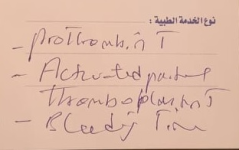 نوع الخدمة الطبية :
- prothrombin T
- Activated partial
thromboplastin T
- Bleeding Time